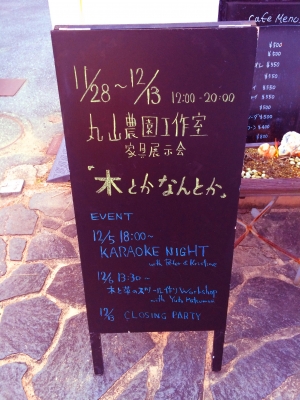 11/28〜12/13 12:00-20:00
丸山農園工作室
家具展示会
「木とかなんとか」
EVENT
12/5 18:00〜
KARAOKE NIGHT
with
12/6 13:30〜
木と革のスツール作り Workshop
with
12/13 CLOSING PARTY
Cafe Menu
¥500
¥500
¥500